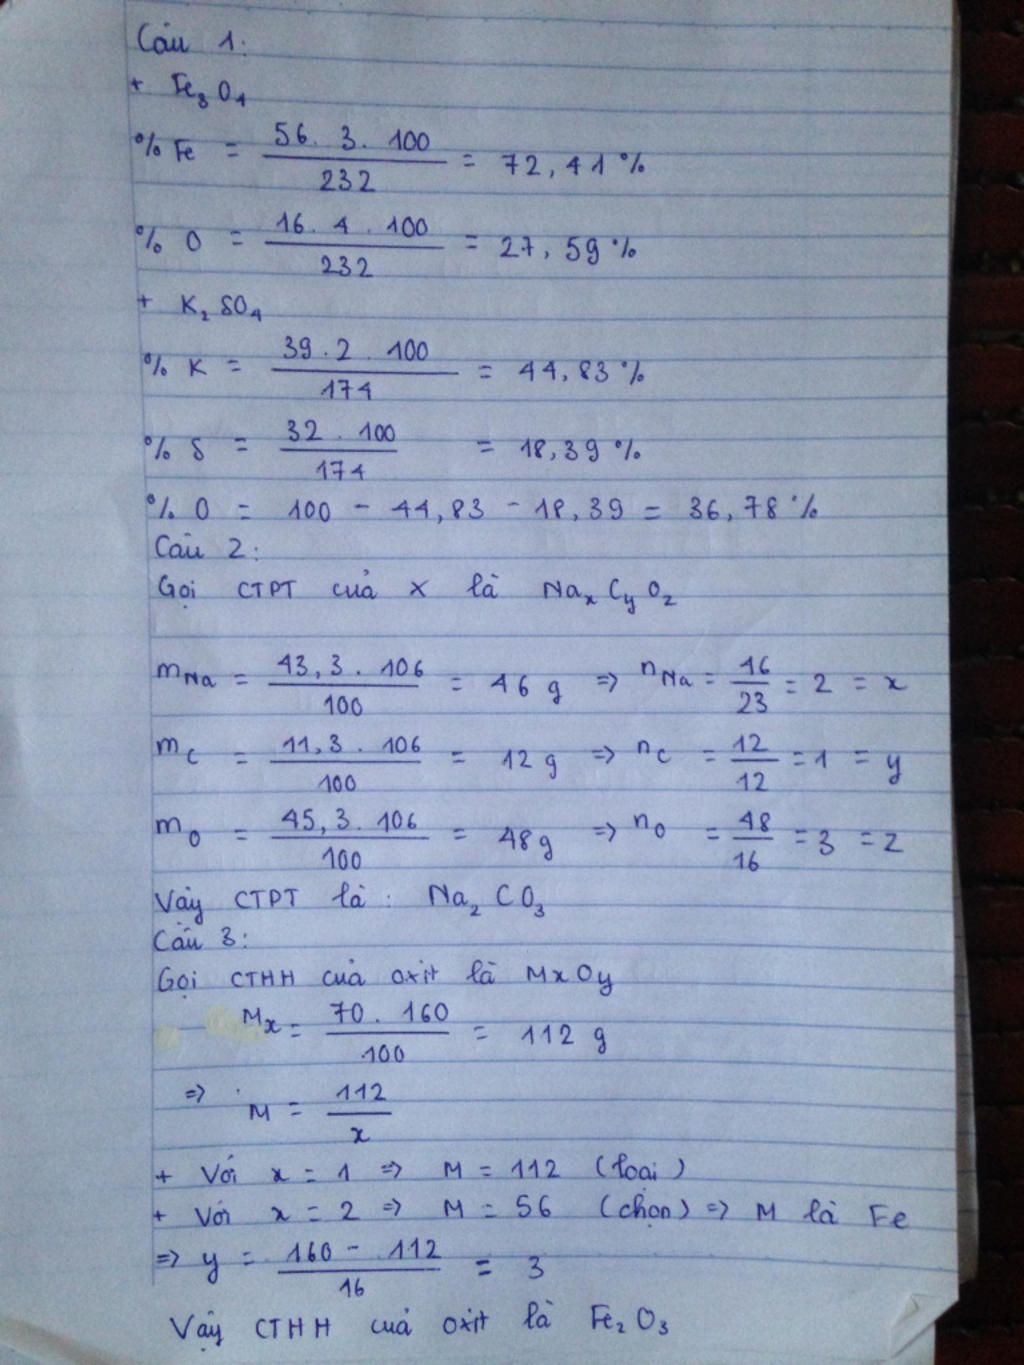 Câu 1:
+ Fe₃O₄
% Fe = 56. 3. 100 / 232 = 72,41%
% O = 16. 4. 100 / 232 = 27,59%
+ K₂SO₄
% K = 39.2.100 / 174 = 44,83%
% S = 32.100 / 174 = 18,39%
% O = 100 - 44,83 - 18,39 = 36,78%
Câu 2:
Gọi CTPT của X là NaₓCyOz
mNa = 43,3.106 / 100 = 46 g => nNa = 46 / 23 = 2 = x
mC = 11,3.106 / 100 = 12g => nC = 12 / 12 = 1 = y
mO = 45,3.106 / 100 = 48g => nO = 48 / 16 = 3 = z
Vậy CTPT là: Na₂CO₃
Câu 3:
Gọi CTHH của oxit là MxOy
Mx = 70.160 / 100 = 112 g
=> M = 112 / x
+ Với x = 1 => M = 112 (loại)
+ Với x = 2 => M = 56 (chọn) => M là Fe
=> y = 160 - 112 / 16 = 3
Vậy CTHH của oxit là Fe₂O₃